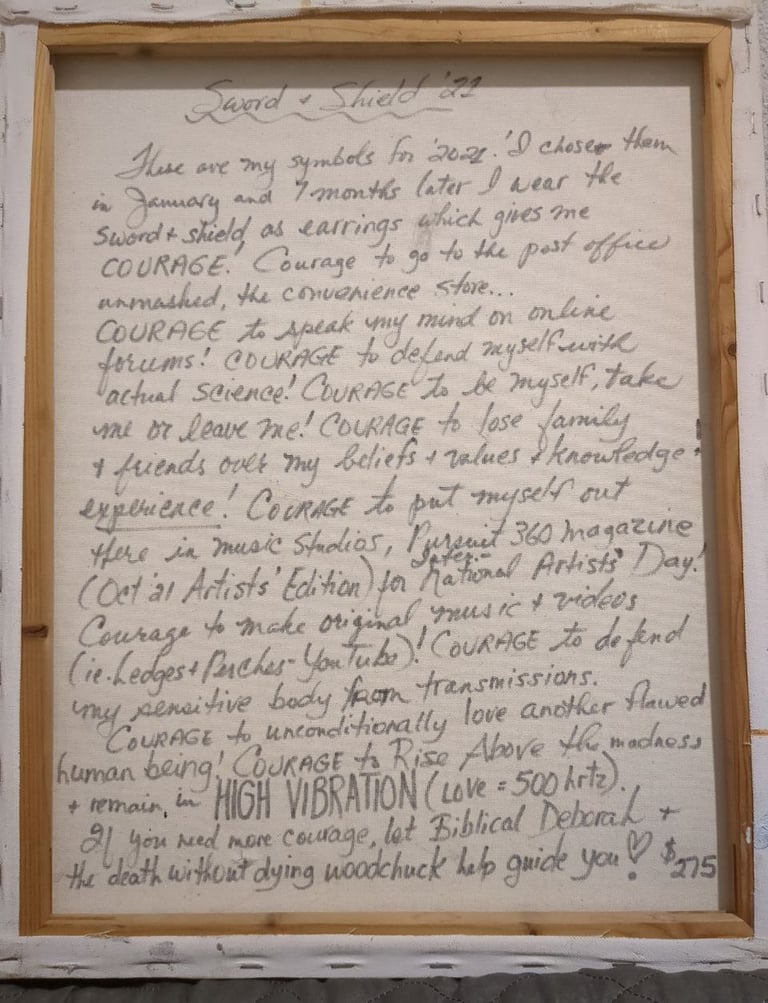 Sword + Shield '21
These are my symbols for '2021.' I chose them
in January and 7 months later I wear the
sword + shield, as earrings which gives me
COURAGE! Courage to go to the post office
unmasked, the convenience store...
COURAGE to speak my mind on online
forums! COURAGE to defend myself with
actual science! COURAGE to be myself, take
me or leave me! COURAGE to lose family
+ friends over my beliefs + values + knowledge +
experience! COURAGE to put myself out
there in music studios, Pursuit 360 magazine
(Oct '21 Artists' Edition) for Inter-National Artists' Day!
Courage to make original music + videos
(ie. Ledges + Perches - YouTube)! COURAGE to defend
my sensitive body from transmissions.
COURAGE to unconditionally love another flawed
human being! COURAGE to Rise Above the madness
+ remain, in HIGH VIBRATION (Love = 500 hrtz).
If you need more courage, let Biblical Deborah +
the death without dying woodchuck help guide you! $275